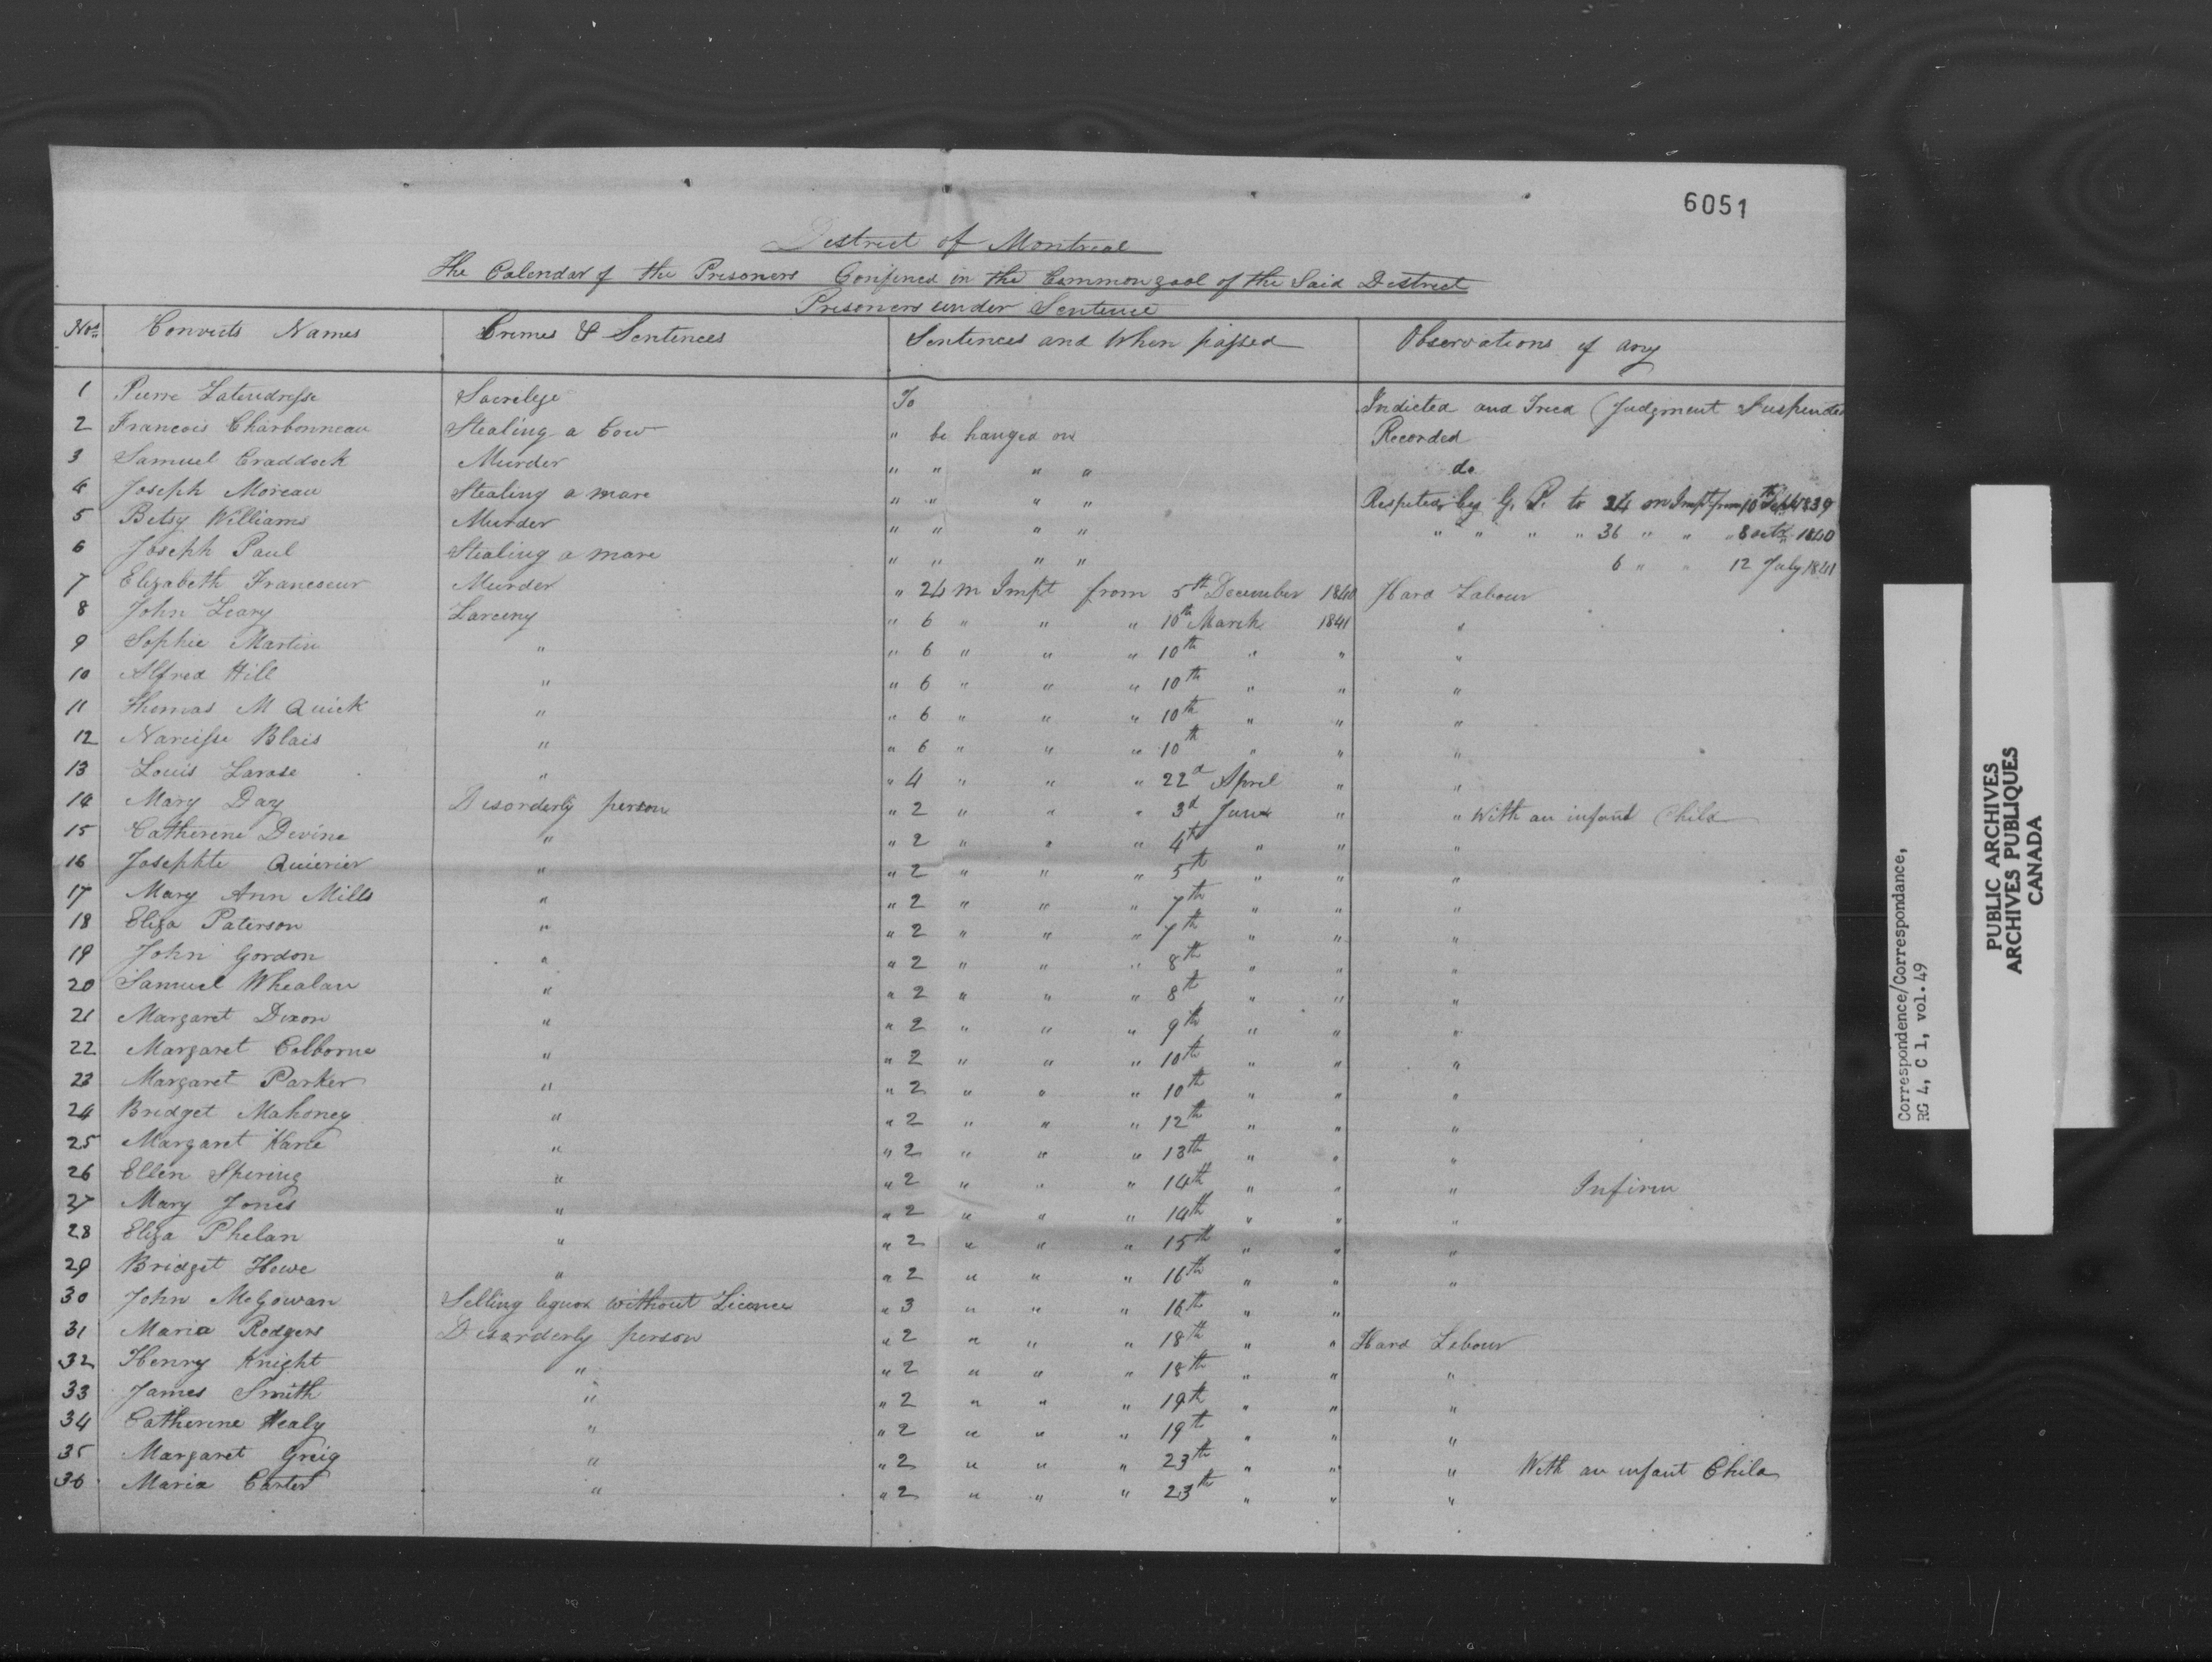 6051
District of Montreal
The Calendar of the Prisoners Confined in the Common gaol of the Said District
Prisoners under Sentence
Nos Convicts Names Crimes & Sentences Sentences and When passed Observations if any
1 Pierre Latendresse Sacrelege To Indicted and Tried (Judgment Suspended
2 Francois Charbonneau Stealing a Cow " be hanged on Recorded
3 Samuel Craddock Murder " " " " do
4 Joseph Moreau Stealing a mare " " " " Respited by G. P. to 24 m Impt from 10th Sept 1839
5 Betsy Williams Murder " " " " " " " " 36 " " " 8 octr 1840
6 Joseph Paul Stealing a mare " " " " 6 " " 12 July 1841
7 Elizabeth Francoeur Murder " 24 m Impt from 5th December 1840 Hard Labour
8 John Leary Larceny " 6 " " " 10th March 1841 "
9 Sophie Martin " " 6 " " " 10th " " "
10 Alfred Hill " " 6 " " " 10th " " "
11 Thomas M Quick " " 6 " " " 10th " " "
12 Narcisse Blais " " 6 " " " 10th " " "
13 Louis Larose " " 4 " " " 22d April " "
14 Mary Day Disorderly person " 2 " " " 3d June " " With an infant Child
15 Catherine Devine " " 2 " " " 4th " " "
16 Josephte Quierier " " 2 " " " 5th " " "
17 Mary Ann Mills " " 2 " " " 7th " " "
18 Eliza Paterson " " 2 " " " 7th " " "
19 John Gordon " " 2 " " " 8th " " "
20 Samuel Whealan " " 2 " " " 8th " " "
21 Margaret Dixon " " 2 " " " 9th " " "
22 Margaret Colborne " " 2 " " " 10th " " "
23 Margaret Parker " " 2 " " " 10th " " "
24 Bridget Mahoney " " 2 " " " 12th " " "
25 Margaret Kane " " 2 " " " 13th " " "
26 Ellen Spering " " 2 " " " 14th " " " Infirm
27 Mary Jones " " 2 " " " 14th " " "
28 Eliza Phelan " " 2 " " " 15th " " "
29 Bridget Howe " " 2 " " " 16th " " "
30 John McGowan Selling liquor without Licence " 3 " " " 16th " "
31 Maria Rodgers Disorderly person " 2 " " " 18th " " Hard Lebour
32 Henry Knight " " 2 " " " 18th " " "
33 James Smith " " 2 " " " 19th " " "
34 Catherine Healy " " 2 " " " 19th " " "
35 Margaret Greig " " 2 " " " 23th " " " With an infant Child
36 Maria Carter " " 2 " " " 23th " " "
Correspondence/Correspondance,
RG 4, C 1, vol. 49
PUBLIC ARCHIVES
ARCHIVES PUBLIQUES
CANADA